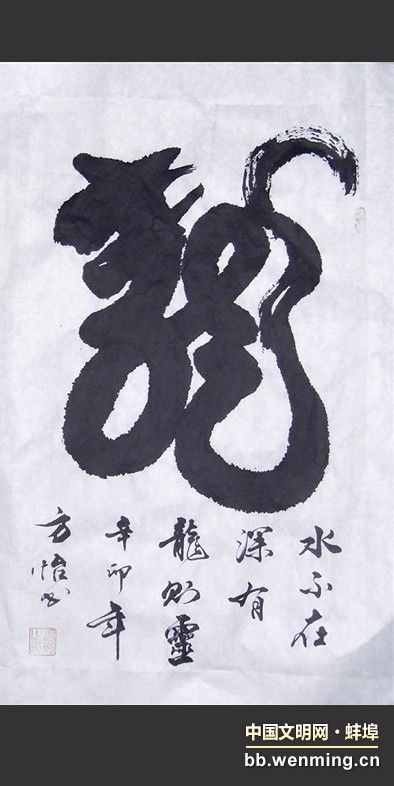 龍
水不在
深有
龍則靈
辛卯年
方怡书
中国文明网·蚌埠
bb.wenming.cn